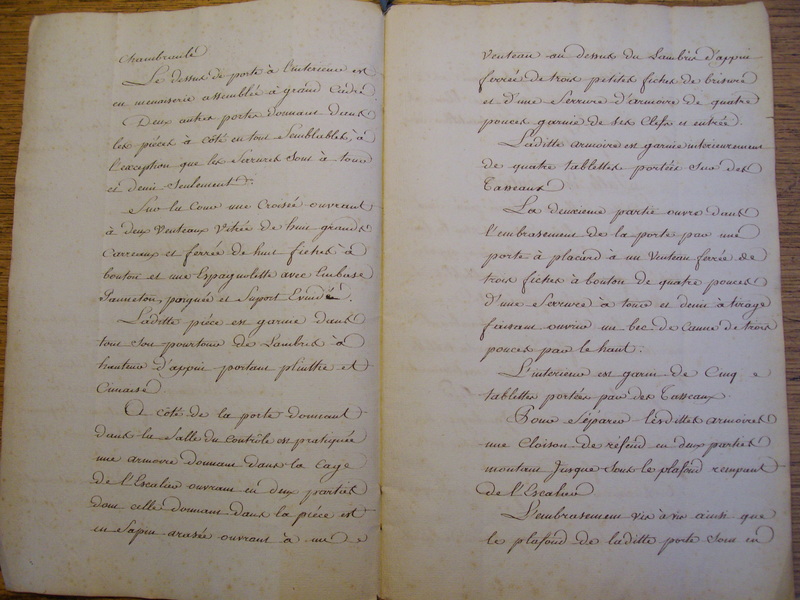 chambranle
Le dessus de porte à l'interieur est
en menuiserie assemblée à grand Cadre
Deux autres portes donnant dans
les pièces à côté en tout Semblables, à
l'exception que les Serrures Sont à tour
et demie Seulement.
Sur la Cour une Croisée ouvrant
à deux Venteaux Vitrée de huit grands
Carreaux et ferrée de huit fiches à
bouton et une Espagnolette avec Embase
Panneton, poignée et Suport Evuidé.
Laditte pièce est garnie dans
tout Son pourtour de Lambris à
hauteur d'appui portant plinthe et
Cimaise
A côté de la porte donnant
dans la Salle du Contrôle est pratiquée
une armoire donnant dans la Cage
de l'Escalier ouvrant en deux parties
dont celle donnant dans la pièce est
en Sapin arasée ouvrant à un
Venteau au dessus du Lambris d'appui
ferrée de trois petites fiches de brisure
et d'une Serrure d'armoire de quatre
pouces garnie de ses Clefs et entrée.
Laditte armoire est garnie interieurement
de quatre tablettes portées Sur des
Tasseaux
La deuxieme partie ouvre dans
l'embrasement de la porte par une
porte à placard à un Venteau ferrée de
trois fiches à bouton de quatre pouces
d'une Serrure à tour et demie à tirage
faisant ouvrir un bec de Canne de trois
pouces par le haut.
L'interieur est garni de Cinq
tablettes portées par des Tasseaux
Pour Séparer lesdittes armoires
une Cloison de réfend en deux parties
montant Jusque Sous le plafond rempant
de l'Escalier
L'embrasement vis à vis ainsi que
le plafond de laditte porte Sont en